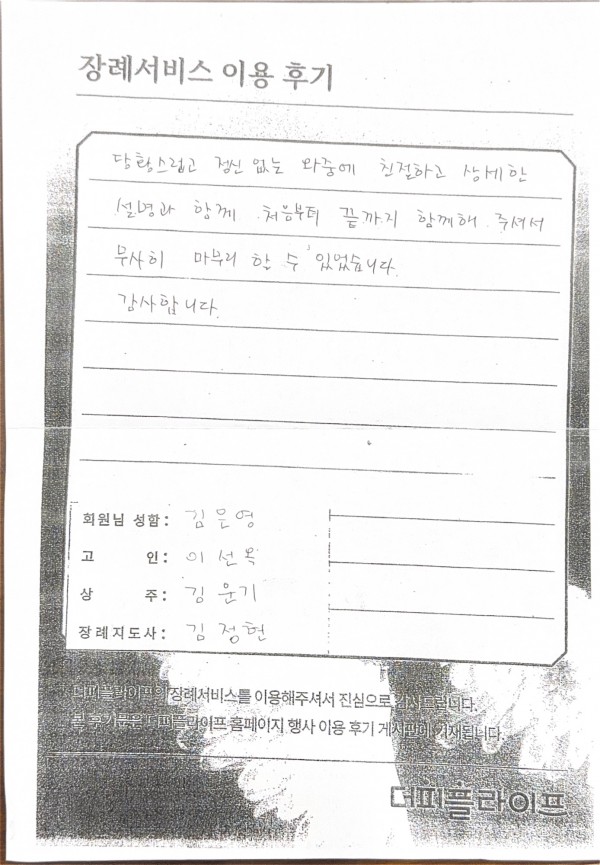 장례서비스 이용 후기
당황스럽고 정신 없는 와중에 친절하고 상세한
설명과 함께 처음부터 끝까지 함께해 주셔서
무사히 마무리 할 수 있었습니다.
감사합니다.
회원님 성함: 김은영
고 인: 이선옥
상 주: 김윤기
장례지도사: 김정현
더피플라이프의 장례서비스를 이용해주셔서 진심으로 감사드립니다.
본 후기물은 더피플라이프 홈페이지 행사 이용 후기 게시판에 기재됩니다.
더피플라이프